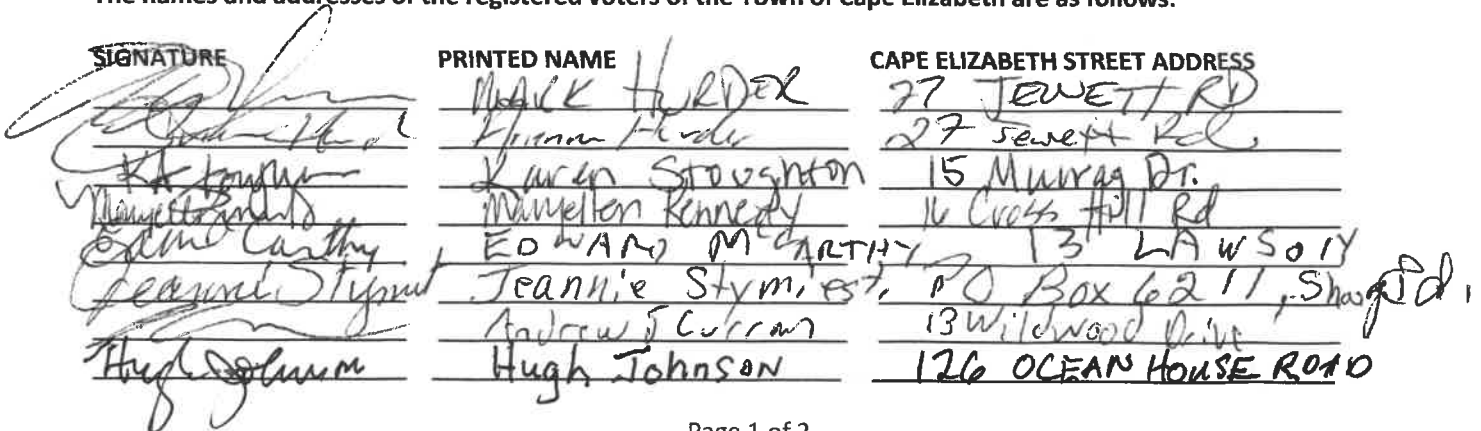 The names and addresses of the registered voters of the Town of Cape Elizabeth are as follows:
SIGNATURE PRINTED NAME CAPE ELIZABETH STREET ADDRESS
MARK HURDER 27 JEWETT RD
Hurder 27 Jewett Rd.
Karen Stoughton 15 Murray Dr.
Maryellen Kennedy 16 Cross Hill Rd
EDWARD McCARTHY 13 LAWSON
Jeannie Stymiest Jeannie Stymiest, PO Box 6211,
Andrew J Curran 13 Wildwood Drive
Hugh Johnson Hugh Johnson 126 OCEAN HOUSE ROAD
Page 1 of 2